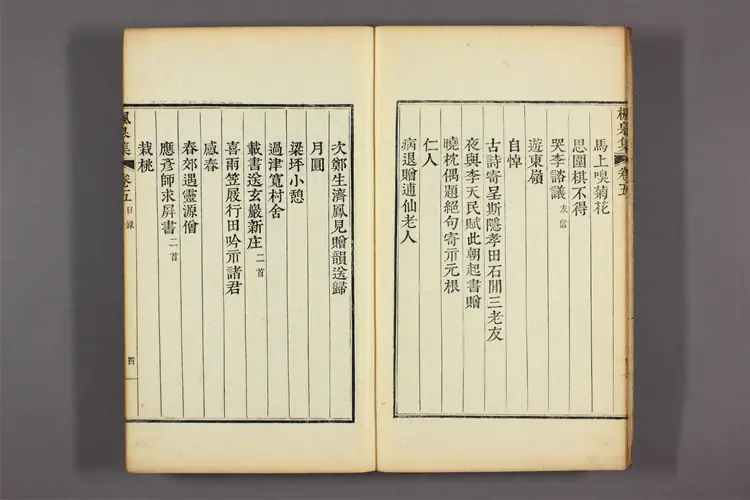 馬上嗅菊花
思圍棋不得
哭李諮議友信
遊東嶺
自悼
古詩寄呈斯隱孝田石閒三老友
夜與李天民賦此朝起書贈
曉枕偶題絕句寄示元根
仁人
病退贈逋仙老人
次鄭生濟鳳見贈韻送歸
月圓
梁坪小憩
過津寬村舍
載書送玄巖新庄二首
喜雨笠屐行田吟示諸君
感春
春郊遇靈源僧
應彥師求屛書二首
栽桃
楓皋集 卷五 目錄 四